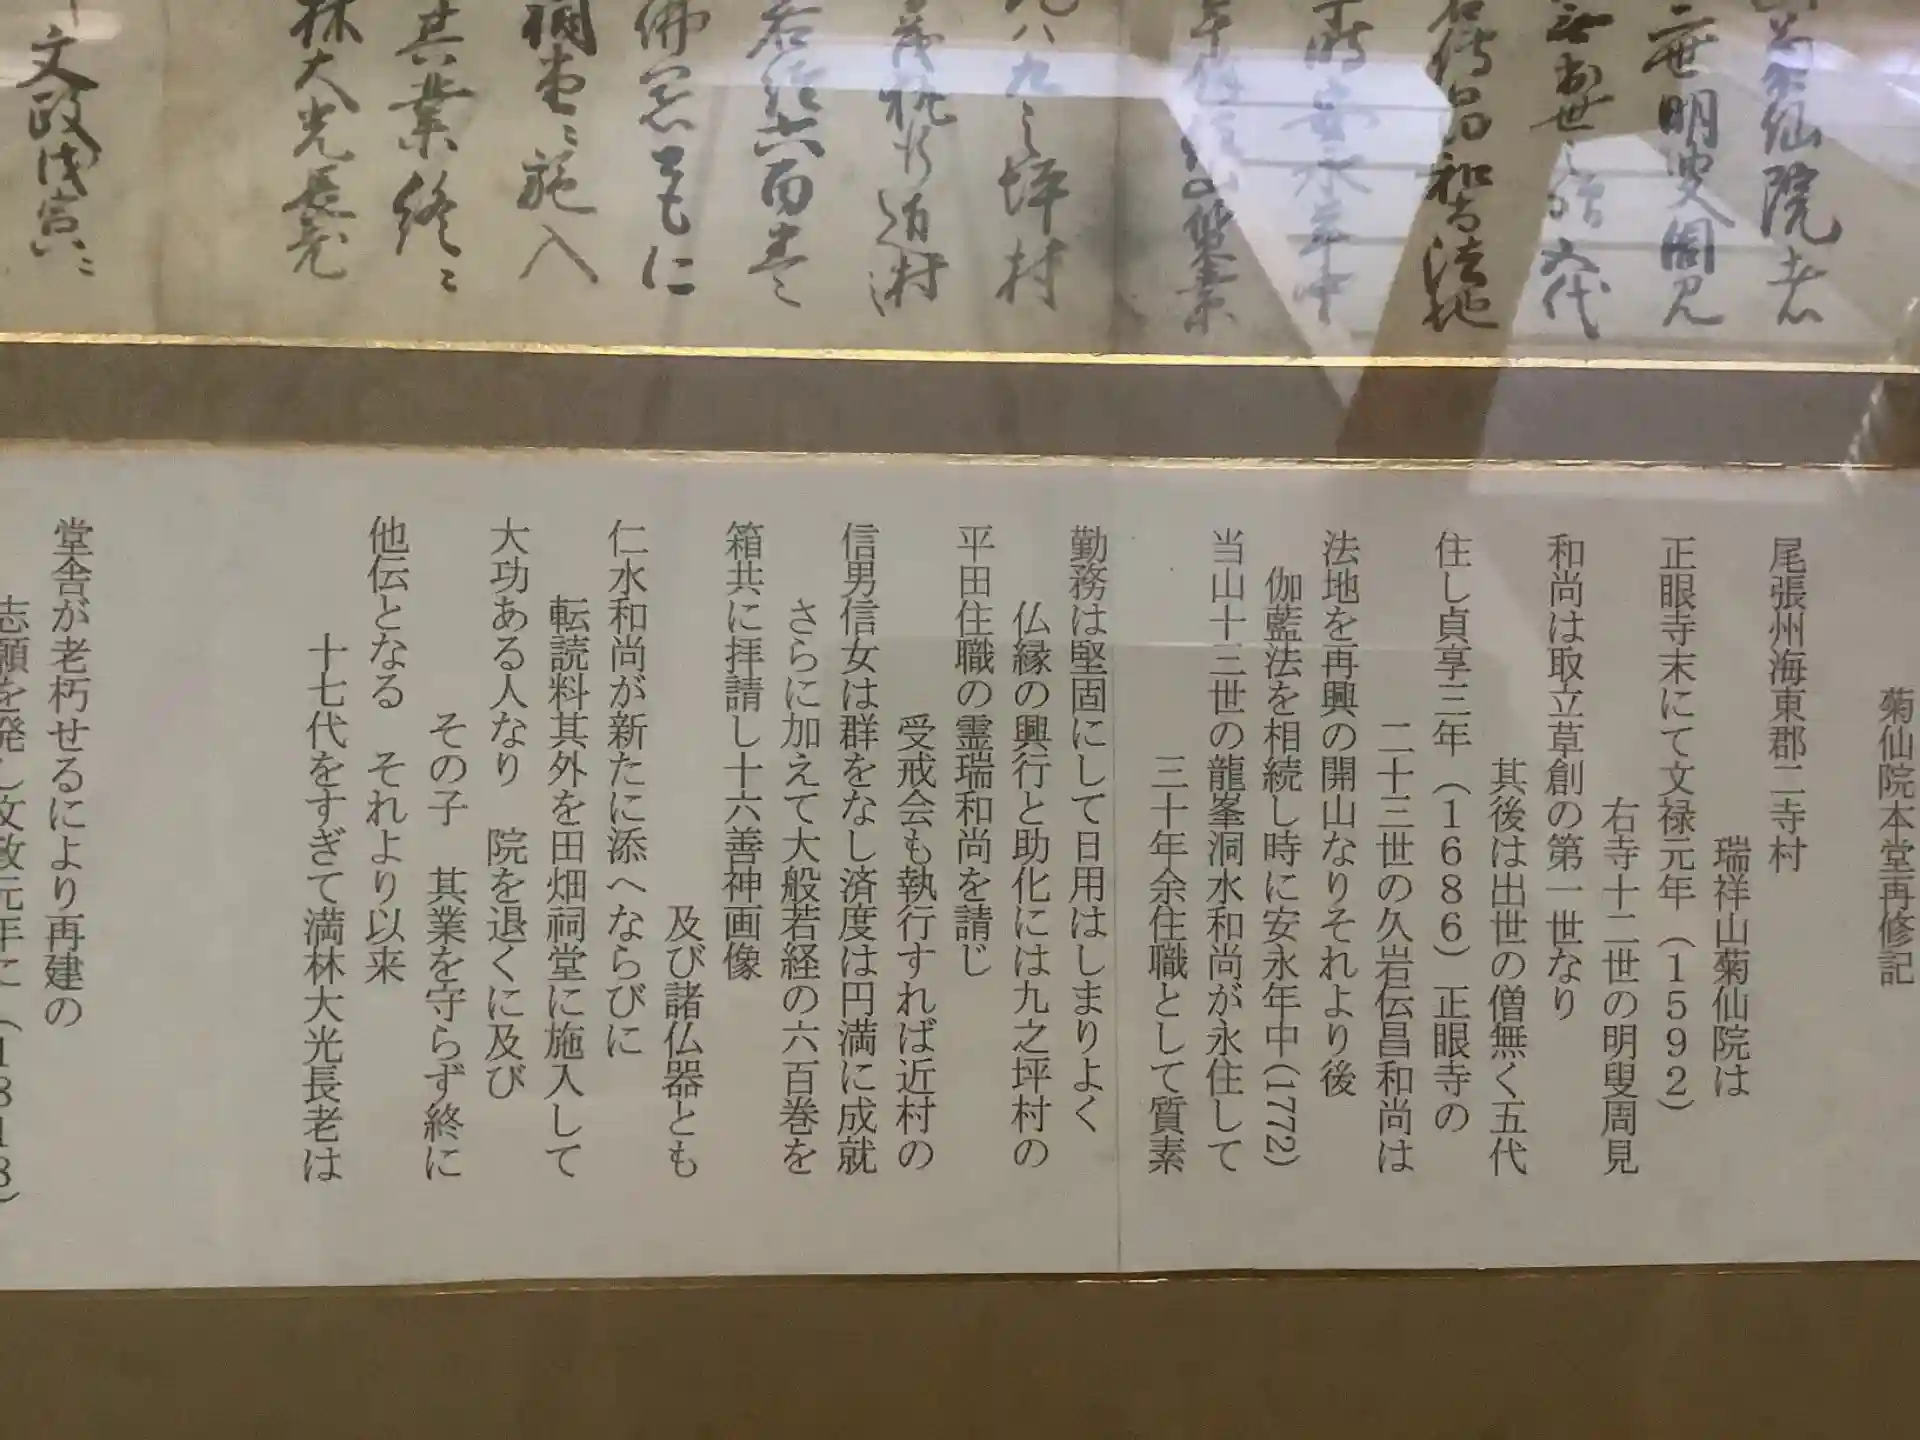 山菊仙院者
二世明叟周見
無出世之僧五代
岩傳昌和尚法地
于時安永年中
九之坪村
若経六百巻
佛器ともに
祠堂ニ施入
其業終ニ
林大光長老
文政戊寅ニ
菊仙院本堂再修記
尾張州海東郡二寺村
瑞祥山菊仙院は
正眼寺末にて文禄元年（1592）
右寺十二世の明叟周見
和尚は取立草創の第一世なり
其後は出世の僧無く五代
住し貞享三年（1686）正眼寺の
二十三世の久岩伝昌和尚は
法地を再興の開山なりそれより後
伽藍法を相続し時に安永年中(1772)
当山十三世の龍峯洞水和尚が永住して
三十年余住職として質素
勤務は堅固にして日用はしまりよく
仏縁の興行と助化には九之坪村の
平田住職の霊瑞和尚を請じ
受戒会も執行すれば近村の
信男信女は群をなし済度は円満に成就
さらに加えて大般若経の六百巻を
箱共に拝請し十六善神画像
及び諸仏器とも
仁水和尚が新たに添へならびに
転読料其外を田畑祠堂に施入して
大功ある人なり　院を退くに及び
その子　其業を守らず終に
他伝となる　それより以来
十七代をすぎて満林大光長老は
堂舎が老朽せるにより再建の
志願を発し文政元年に（1818）